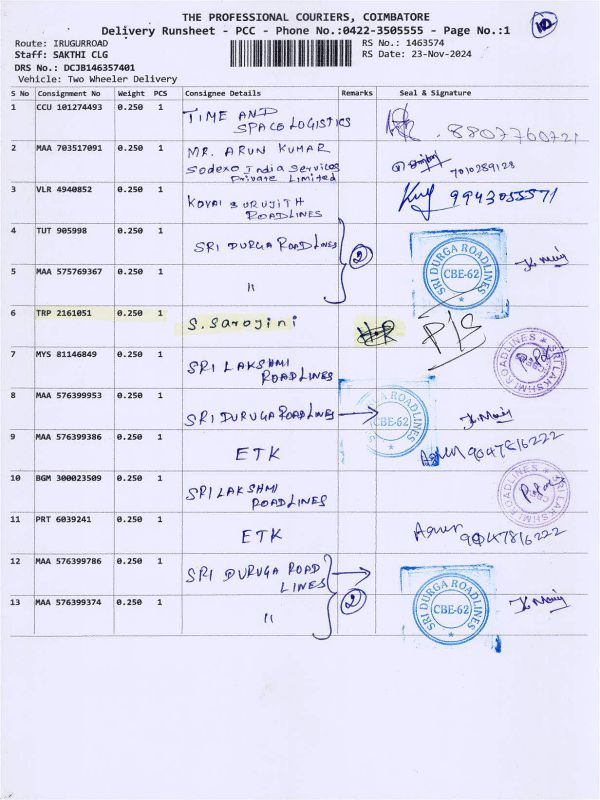 THE PROFESSIONAL COURIERS, COIMBATORE
Delivery Runsheet - PCC - Phone No.:0422-3505555 - Page No.:1
Route: IRUGURROAD
RS No.: 1463574
Staff: SAKTHI CLG
RS Date: 23-Nov-2024
DRS No.: DCJB146357401
Vehicle: Two Wheeler Delivery
S No Consignment No Weight PCS Consignee Details Remarks Seal & Signature
1 CCU 101274493 0.250 1 TIME AND
SPACE LOGISTICS
8807760721
2 MAA 703517091 0.250 1 MR. ARUN KUMAR
Sodexo India Services
Private Limited
7010289128
3 VLR 4940852 0.250 1 KOVAI SURUJITH
ROADLINES
9943055571
4 TUT 905998 0.250 1 SRI DURGA ROADLINES
2
SRI DURGA ROADLINES
CBE-62
5 MAA 575769367 0.250 1 "
6 TRP 2161051 0.250 1 S. Sarojini
P/S
7 MYS 81146849 0.250 1 SRI LAKSHMI
ROADLINES
SRI LAKSHMI ROADLINES
8 MAA 576399953 0.250 1 SRI DURUGA ROADLINES
ROADLINES
CBE-62
9 MAA 576399386 0.250 1 ETK
9047816222
10 BGM 300023509 0.250 1 SRI LAKSHMI
ROADLINES
SRI LAKSHMI ROADLINES
11 PRT 6039241 0.250 1 ETK
9047816222
12 MAA 576399786 0.250 1 SRI DURUGA ROAD
LINES
2
SRI DURGA ROADLINES
CBE-62
13 MAA 576399374 0.250 1 "